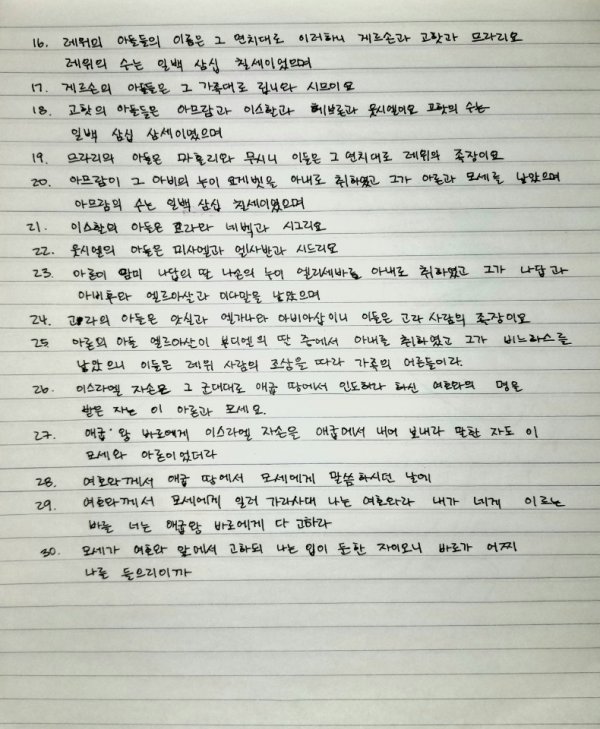 16. 레위의 아들들의 이름은 그 연치대로 이러하니 게르손과 고핫과 므라리요
레위의 수는 일백 삼십 칠세이었으며
17. 게르손의 아들들은 그 가족대로 립니와 시므이요
18. 고핫의 아들들은 아므람과 이스할과 헤브론과 웃시엘이요 고핫의 수는
일백 삼십 삼세이었으며
19. 므라리의 아들은 마흘리와 무시니 이들은 그 연치대로 레위의 족장이요
20. 아므람이 그 아비의 누이 요게벳을 아내로 취하였고 그가 아론과 모세를 낳았으며
아므람의 수는 일백 삼십 칠세이었으며
21. 이스할의 아들은 고라와 네벡과 시그리요
22. 웃시엘의 아들은 미사엘과 엘사반과 시드리요
23. 아론이 암미 나답의 딸 나손의 누이 엘리세바로 아내로 취하였고 그가 나답과
아비후와 엘르아살과 이다말을 낳았으며
24. 고라의 아들은 앗실과 엘가나와 아비아삽이니 이들은 고라 사람의 족장이요
25. 아론의 아들 엘르아살이 부디엘의 딸 중에서 아내로 취하였고 그가 비느하스를
낳았으니 이들은 레위 사람의 조상을 따라 가족의 어른들이라.
26. 이스라엘 자손을 그 군대대로 애굽 땅에서 인도하라 하신 여호와의 명을
받은 자는 이 아론과 모세요.
27. 애굽 왕 바로에게 이스라엘 자손을 애굽에서 내어 보내라 말한 자도 이
모세와 아론이었더라
28. 여호와께서 애굽 땅에서 모세에게 말씀하시던 날에
29. 여호와께서 모세에게 일러 가라사대 나는 여호와라 내가 네게 이르는
바를 너는 애굽왕 바로에게 다 고하라
30. 모세가 여호와 앞에서 고하되 나는 입이 둔한 자이오니 바로가 어찌
나를 들으리이까